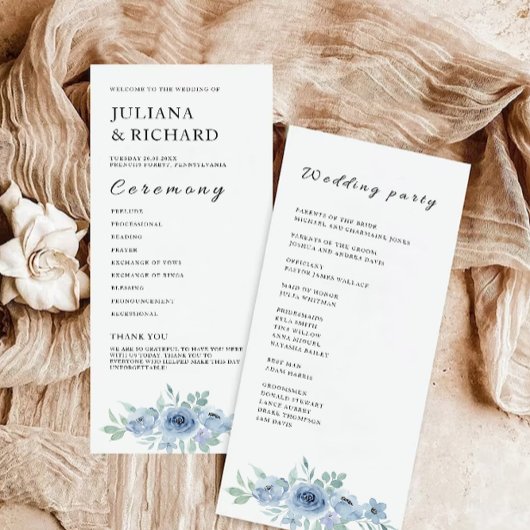 WELCOME TO THE WEDDING OF
JULIANA
& RICHARD
TUESDAY 20.03.20XX
FRENCH'S FOREST, PENNSYLVANIA
Ceremony
PRELUDE
PROCESSIONAL
READING
PRAYER
EXCHANGE OF VOWS
EXCHANGE OF RINGS
BLESSING
PRONOUNCEMENT
RECESSIONAL
THANK YOU
WE ARE SO GRATEFUL TO HAVE YOU HERE
WITH US TODAY. THANK YOU TO
EVERYONE WHO HELPED MAKE THIS DAY
UNFORGETTABLE!
Wedding party
PARENTS OF THE BRIDE
MICHAEL AND CHARMAINE JONES
PARENTS OF THE GROOM
JOSHUA AND ANDREA DAVIS
OFFICIANT
PASTOR JAMES WALLACE
MAID OF HONOR
JULIA WHITMAN
BRIDESMAIDS
KYLA SMITH
TINA WILLOW
ANNA MIGUEL
NATASHA BAILEY
BEST MAN
ADAM HARRIS
GROOMSMEN
DONALD STEWART
LANCE AUBREY
DRAKE THOMPSON
SAM DAVIS